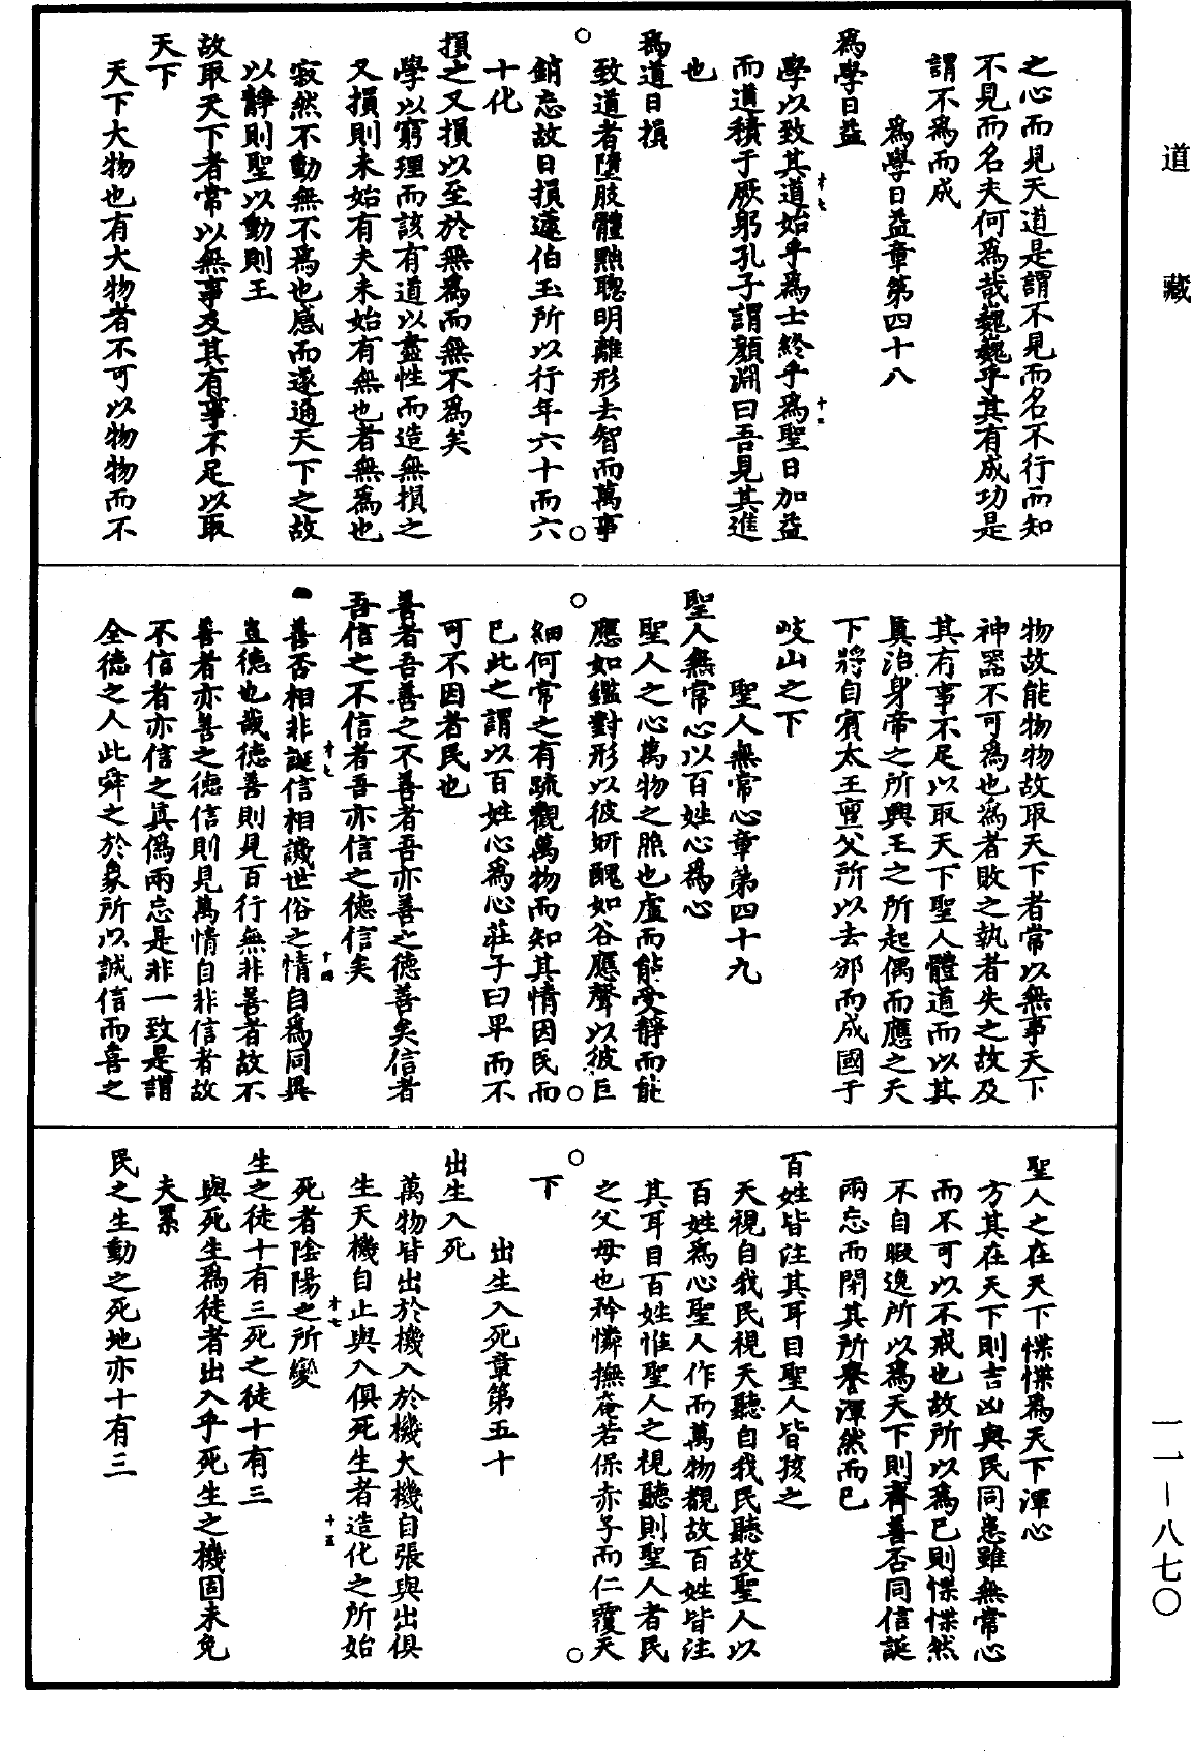 道藏
之心而見天道是謂不見而名不行而知
不見而名夫何為哉巍巍乎其有成功是
謂不為而成
為學日益章第四十八
為學日益
學以致其道始乎為士終乎為聖日加益
而道積于厥躬孔子謂顏淵曰吾見其進
也
為道日損
致道者墮肢體黜聰明離形去智而萬事
銷忘故日損蘧伯玉所以行年六十而六
十化
損之又損以至於無為而無不為矣
學以窮理而該有道以盡性而造無損之
又損則未始有夫未始有無也者無為也
寂然不動無不為也感而遂通天下之故
以靜則聖以動則王
故取天下者常以無事及其有事不足以取
天下
天下大物也有大物者不可以物物而不
才七
十一
物故能物物故取天下者常以無事天下
神器不可為也為者敗之執者失之故及
其有事不足以取天下聖人體道而以其
真治身帝之所興王之所起偶而應之天
下將自賓太王亶父所以去邠而成國于
岐山之下
聖人無常心章第四十九
聖人無常心以百姓心為心
聖人之心萬物之照也虛而能受靜而能
應如鑑對形以彼妍醜如谷應聲以彼巨
細何常之有疏觀萬物而知其情因民而
已此之謂以百姓心為心莊子曰卑而不
可不因者民也
善者吾善之不善者吾亦善之德善矣信者
吾信之不信者吾亦信之德信矣
善否相非誕信相譏世俗之情自為同異
豈德也哉德善則見百行無非善者故不
善者亦善之德信則見萬情自非信者故
不信者亦信之真偽兩忘是非一致是謂
全德之人此舜之於象所以誠信而喜之
才七
十四
聖人之在天下惵惵為天下渾心
方其在天下則吉凶與民同患雖無常心
而不可以不戒也故所以為己則惵惵然
不自暇逸所以為天下則齊善否同信誕
兩忘而閉其所譽渾然而已
百姓皆注其耳目聖人皆孩之
天視自我民視天聽自我民聽故聖人以
百姓為心聖人作而萬物覩故百姓皆注
其耳目百姓惟聖人之視聽則聖人者民
之父母也矜憐撫奄若保赤子而仁覆天
下
出生入死章第五十
出生入死
萬物皆出於機入於機大機自張與出俱
生天機自止與入俱死生者造化之所始
死者陰陽之所變
生之徒十有三死之徒十有三
與死生為徒者出入乎死生之機固未免
夫累
民之生動之死地亦十有三
才七
十五
一一－八七〇